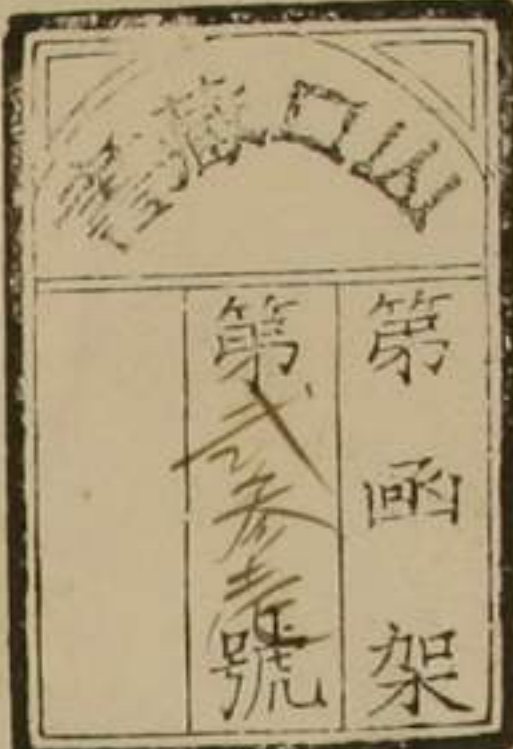 山口蔵書
第 函 架
第弐参壱號